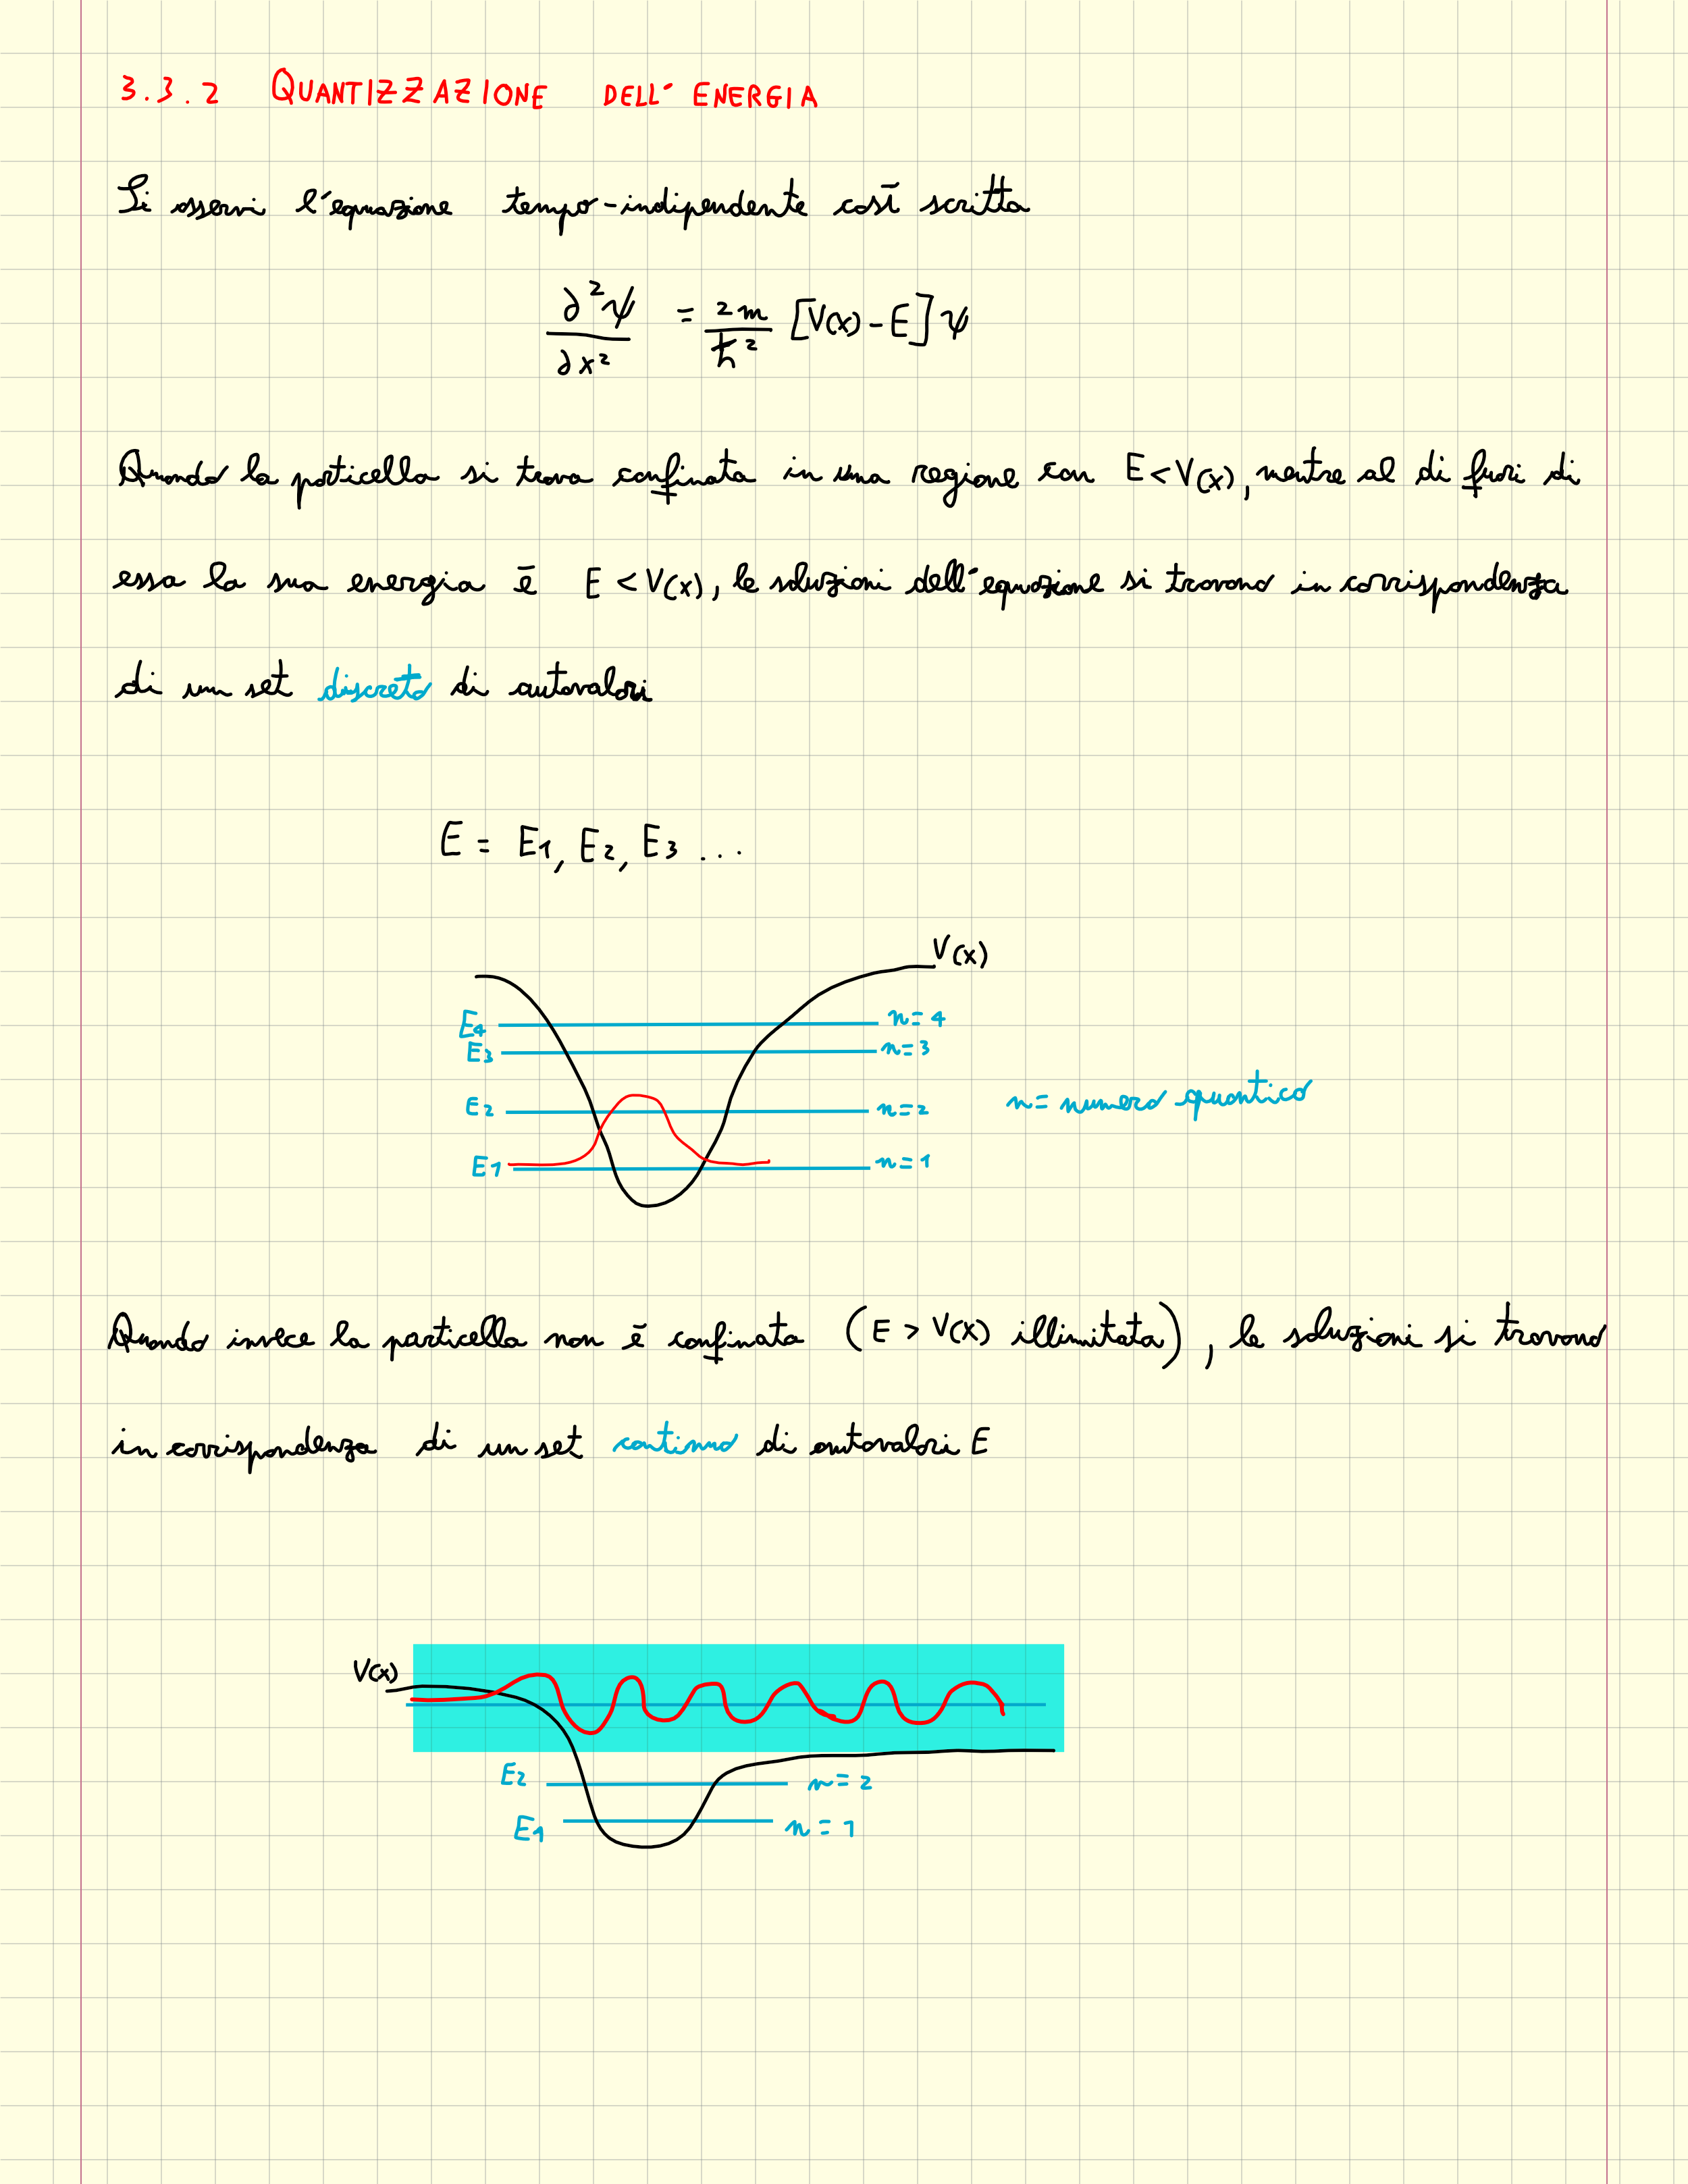 3.3.2 QUANTIZZAZIONE DELL' ENERGIA
Si osservi l'equazione tempo-indipendente così scritta
∂²ψ/∂x² = 2m/ħ² [V(x) - E] ψ
Quando la particella si trova confinata in una regione con E < V(x), mentre al di fuori di
essa la sua energia è E < V(x), le soluzioni dell'equazione si trovano in corrispondenza
di un set discreto di autovalori
E = E1, E2, E3 ...
V(x)
E4 n=4
E3 n=3
E2 n=2
n= numero quantico
E1 n=1
Quando invece la particella non è confinata (E > V(x) illimitata), le soluzioni si trovano
in corrispondenza di un set continuo di autovalori E
V(x)
E2 n=2
E1 n=1